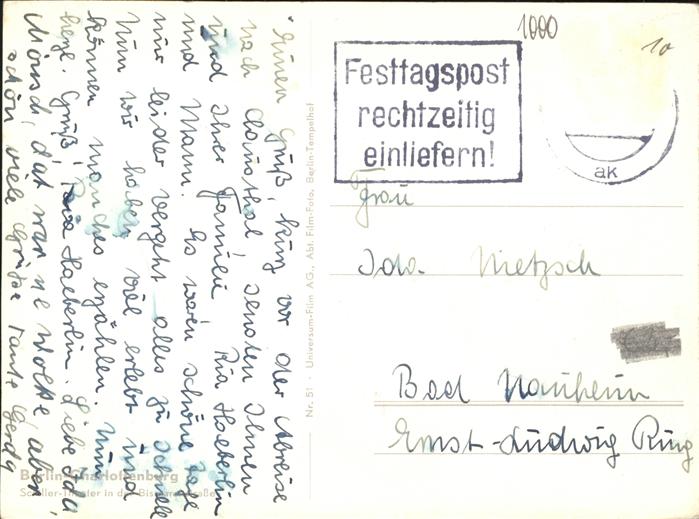 Einen Gruß, kurz vor der Abreise
nach Clausthal, senden Ihnen
und Ihrer Familie, Ria Haeberlin
und Mann. Es waren schöne Tage
nur leider vergeht alles zu schnell
Nun wir haben viel erlebt und
können manches erzählen. Nun
herzl. Gruß! Ria Haeberlin. Liebe Ida
Mönsch, dat war ne Wolke, aber
schön viele Grüße Tante Gerda
Berlin-Charlottenburg
Schiller-Theater in der Bismarckstraße
Nr. 51 · Universum-Film AG., Abt. Film-Foto, Berlin-Tempelhof
1000
10
Festtagspost
rechtzeitig
einliefern!
ak
Frau
Ida Nietzsch
Bad Nauheim
Ernst-Ludwig Ring